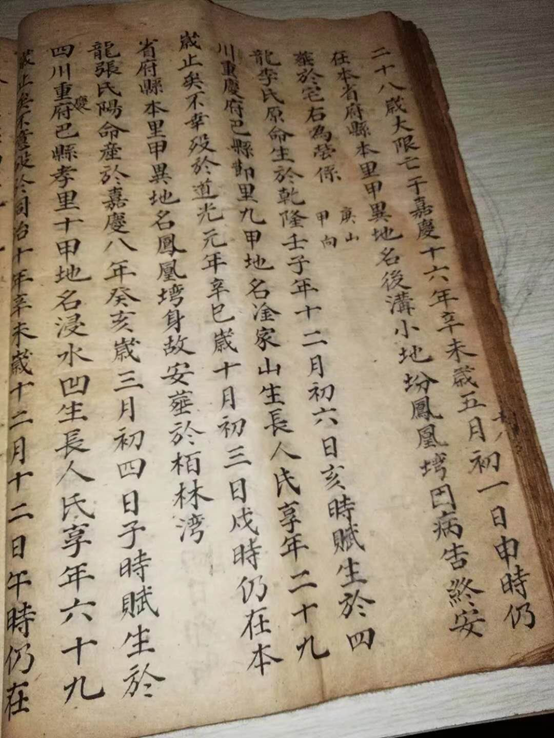 二十八歲大限亡于嘉慶十六年辛未歲五月初一日申時仍
在本省府縣本里甲異地名後溝小地坋鳳凰塆因病告終安
葬於宅右為塋係
庚山
甲向
龍李氏原命生於乾隆壬子年十二月初六日亥時賦生於四
川重慶府巴縣即里九甲地名淦家山生長人氏享年二十九
歲止矣不幸歿於道光元年辛巳歲十月初三日戌時仍在本
省府縣本里甲異地名鳳凰塆身故安葬於栢林湾
龍張氏陽命産於嘉慶八年癸亥歲三月初四日子時賦生於
四川重慶府巴縣孝里十甲地名浸水凹生長人氏享年六十九
歲止矣不意歿於同治十年辛未歲十二月十二日午時仍在